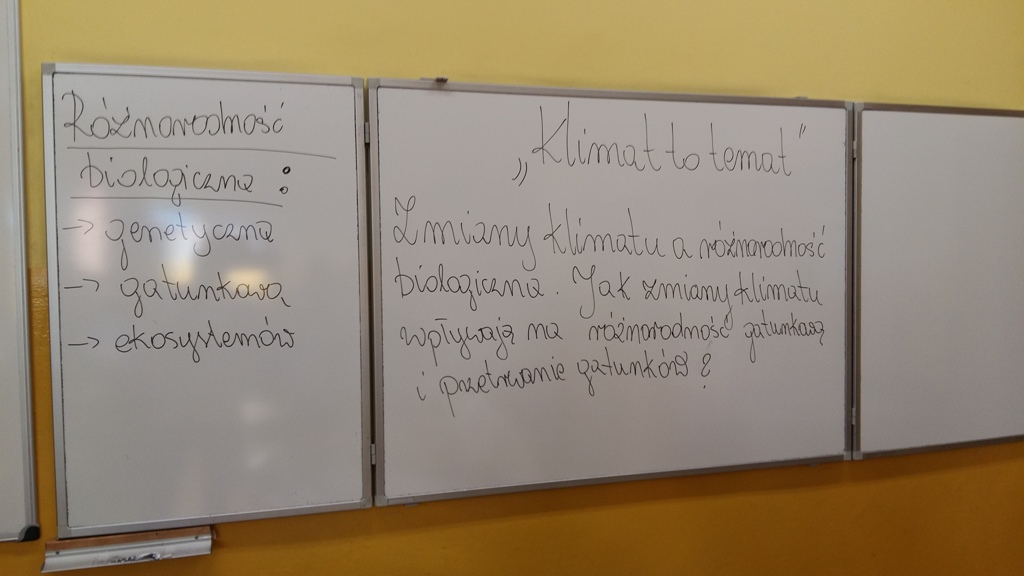 Różnorodność
biologiczna :
→ genetyczna
→ gatunkową
→ ekosystemów
„Klimat to temat”
Zmiany klimatu a różnorodność
biologiczna. Jak zmiany klimatu
wpływają na różnorodność gatunkową
i przetrwanie gatunków?